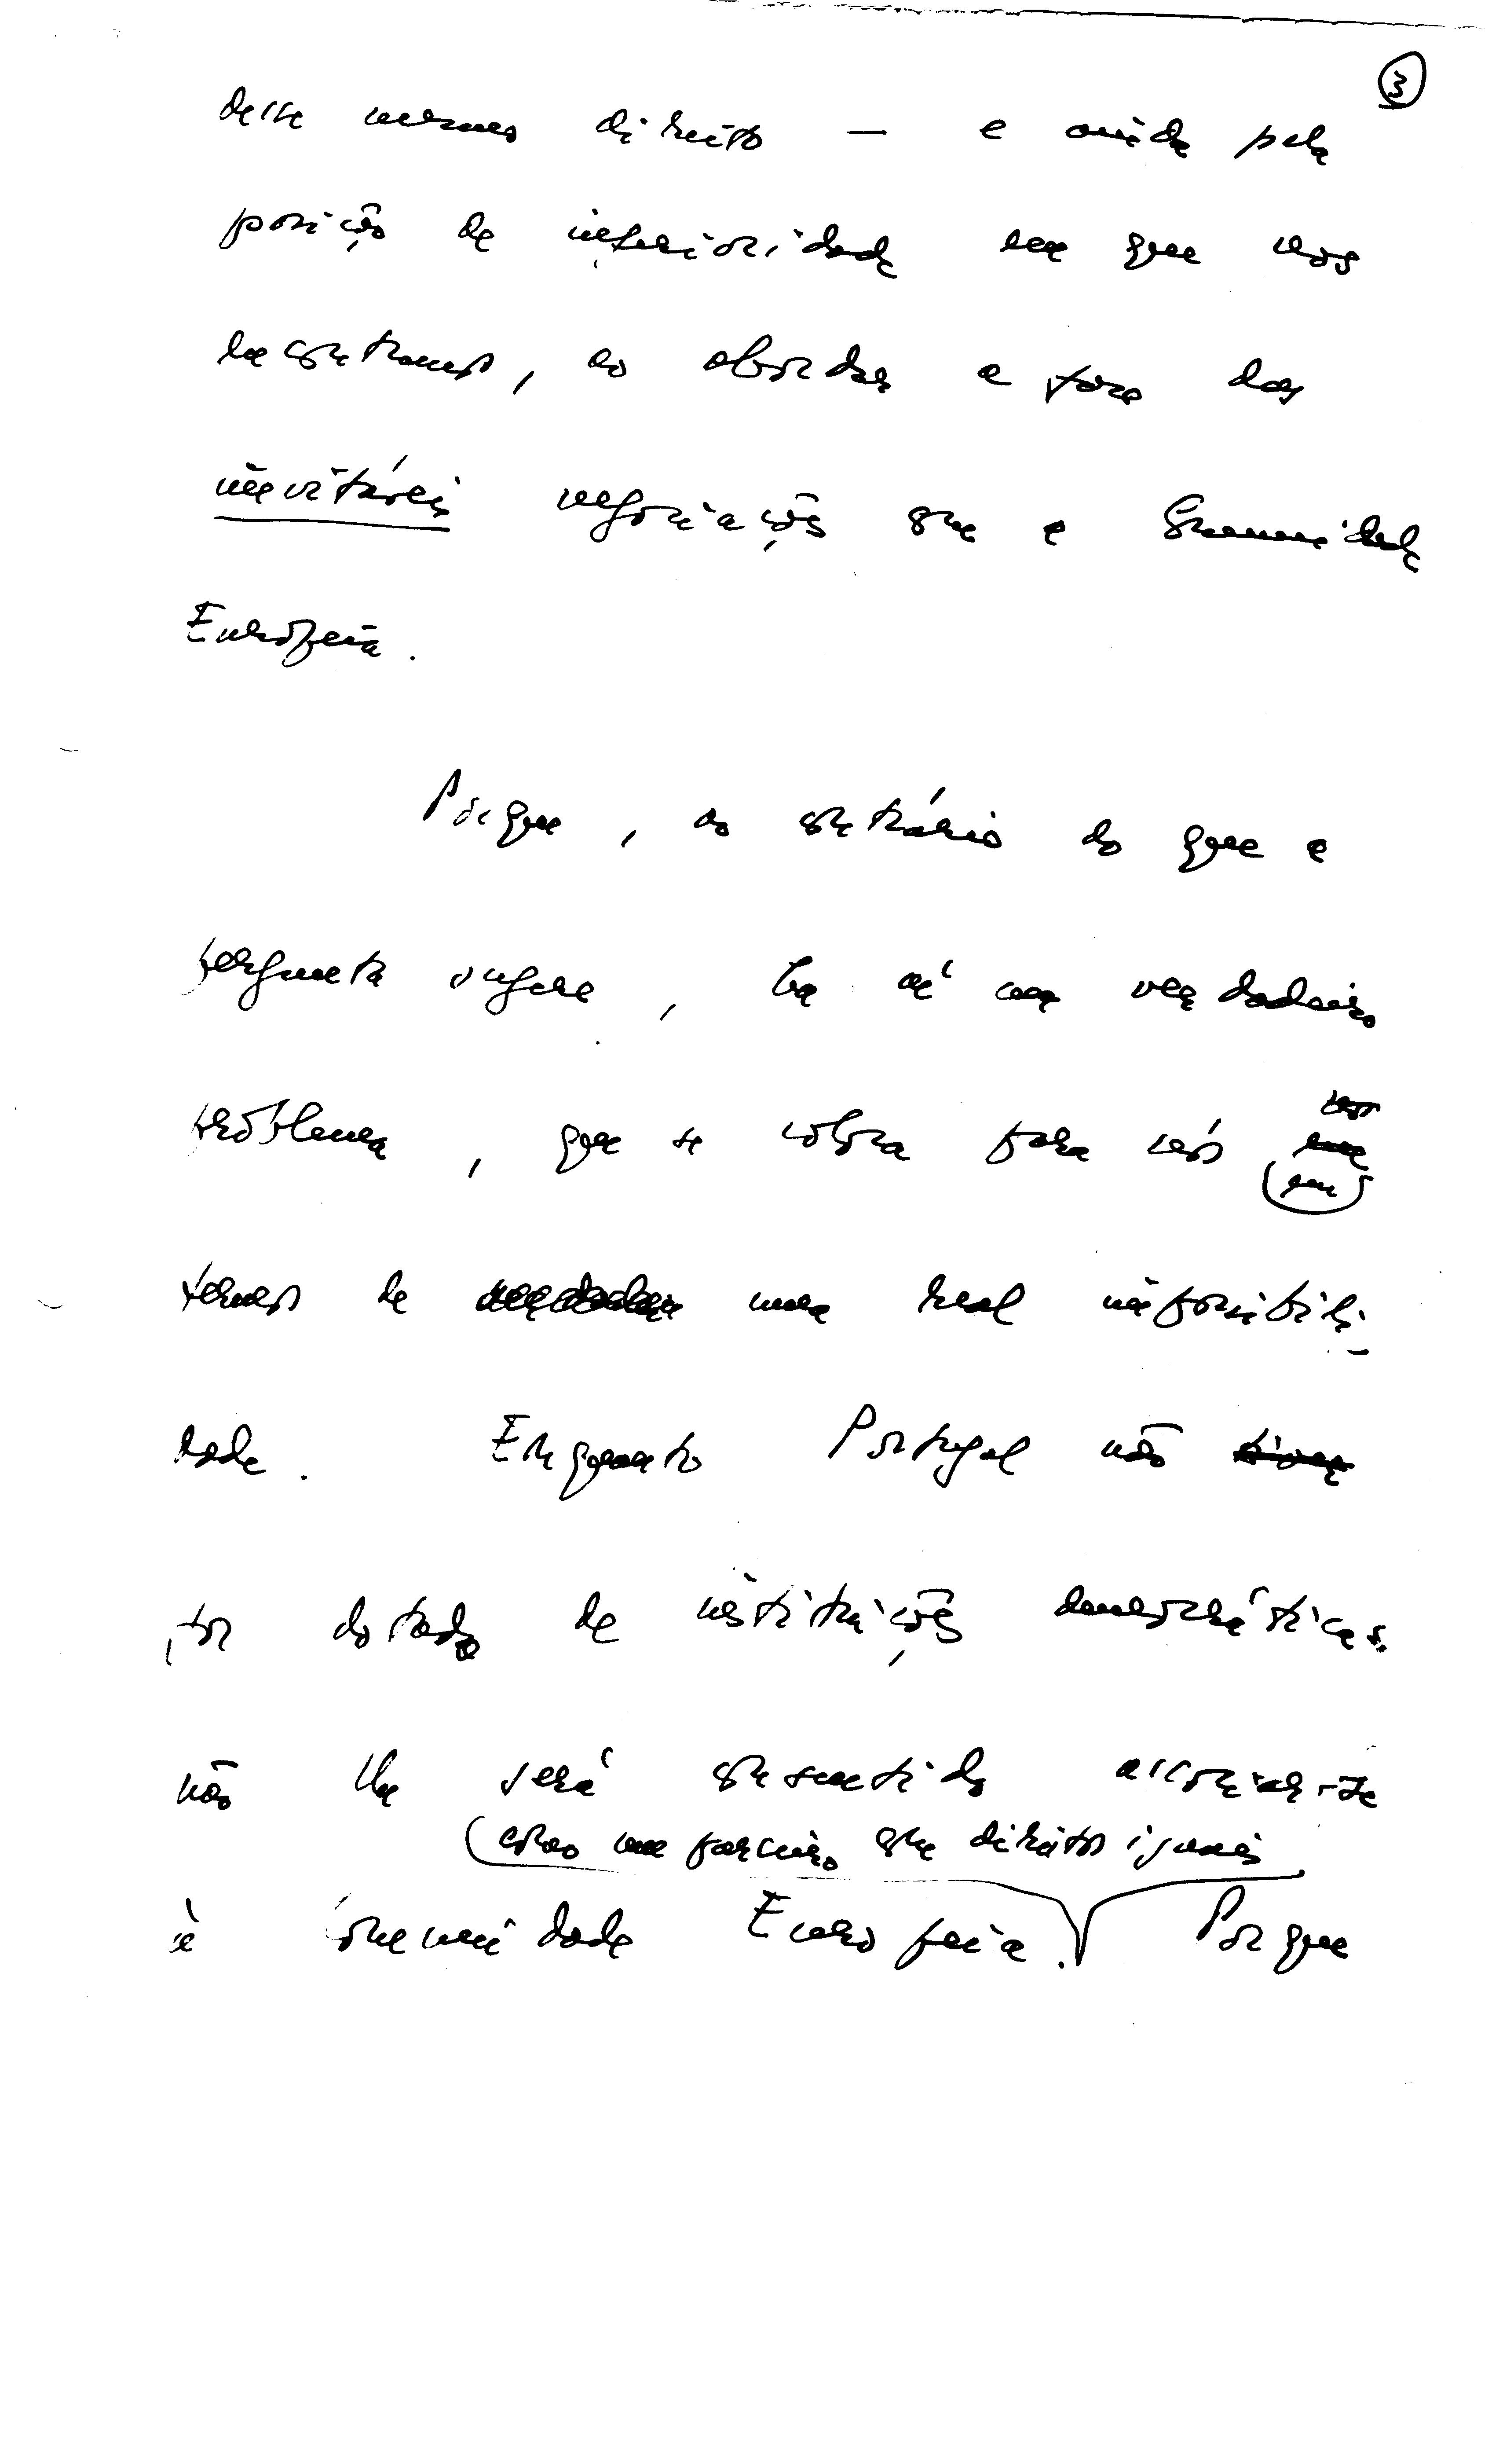 3
desse mesmo direito — e ainda pela
posição de inferioridade em que nos
encontramos, ao abordar a fase das
inevitáveis negociações com a Comunidade
Europeia.
Porque, ao contrário do que a
pergunta sugere, há aí um verdadeiro
problema, que se coloca para nós
em
termos de uma real impossibili-
dade. Enquanto Portugal não
for dotado de instituições democráticas
não lhe será consentido associar-se
como um parceiro com direitos iguais
à Comunidade Europeia. Porque